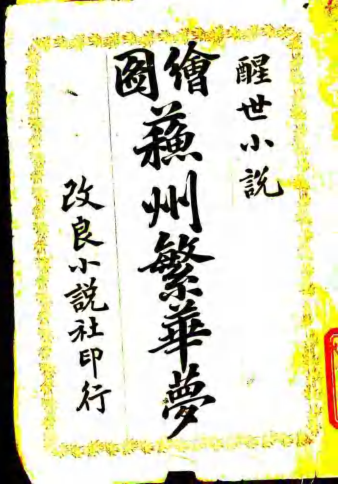 醒世小説
繪圖蘓州繁華夢
改良小説社印行